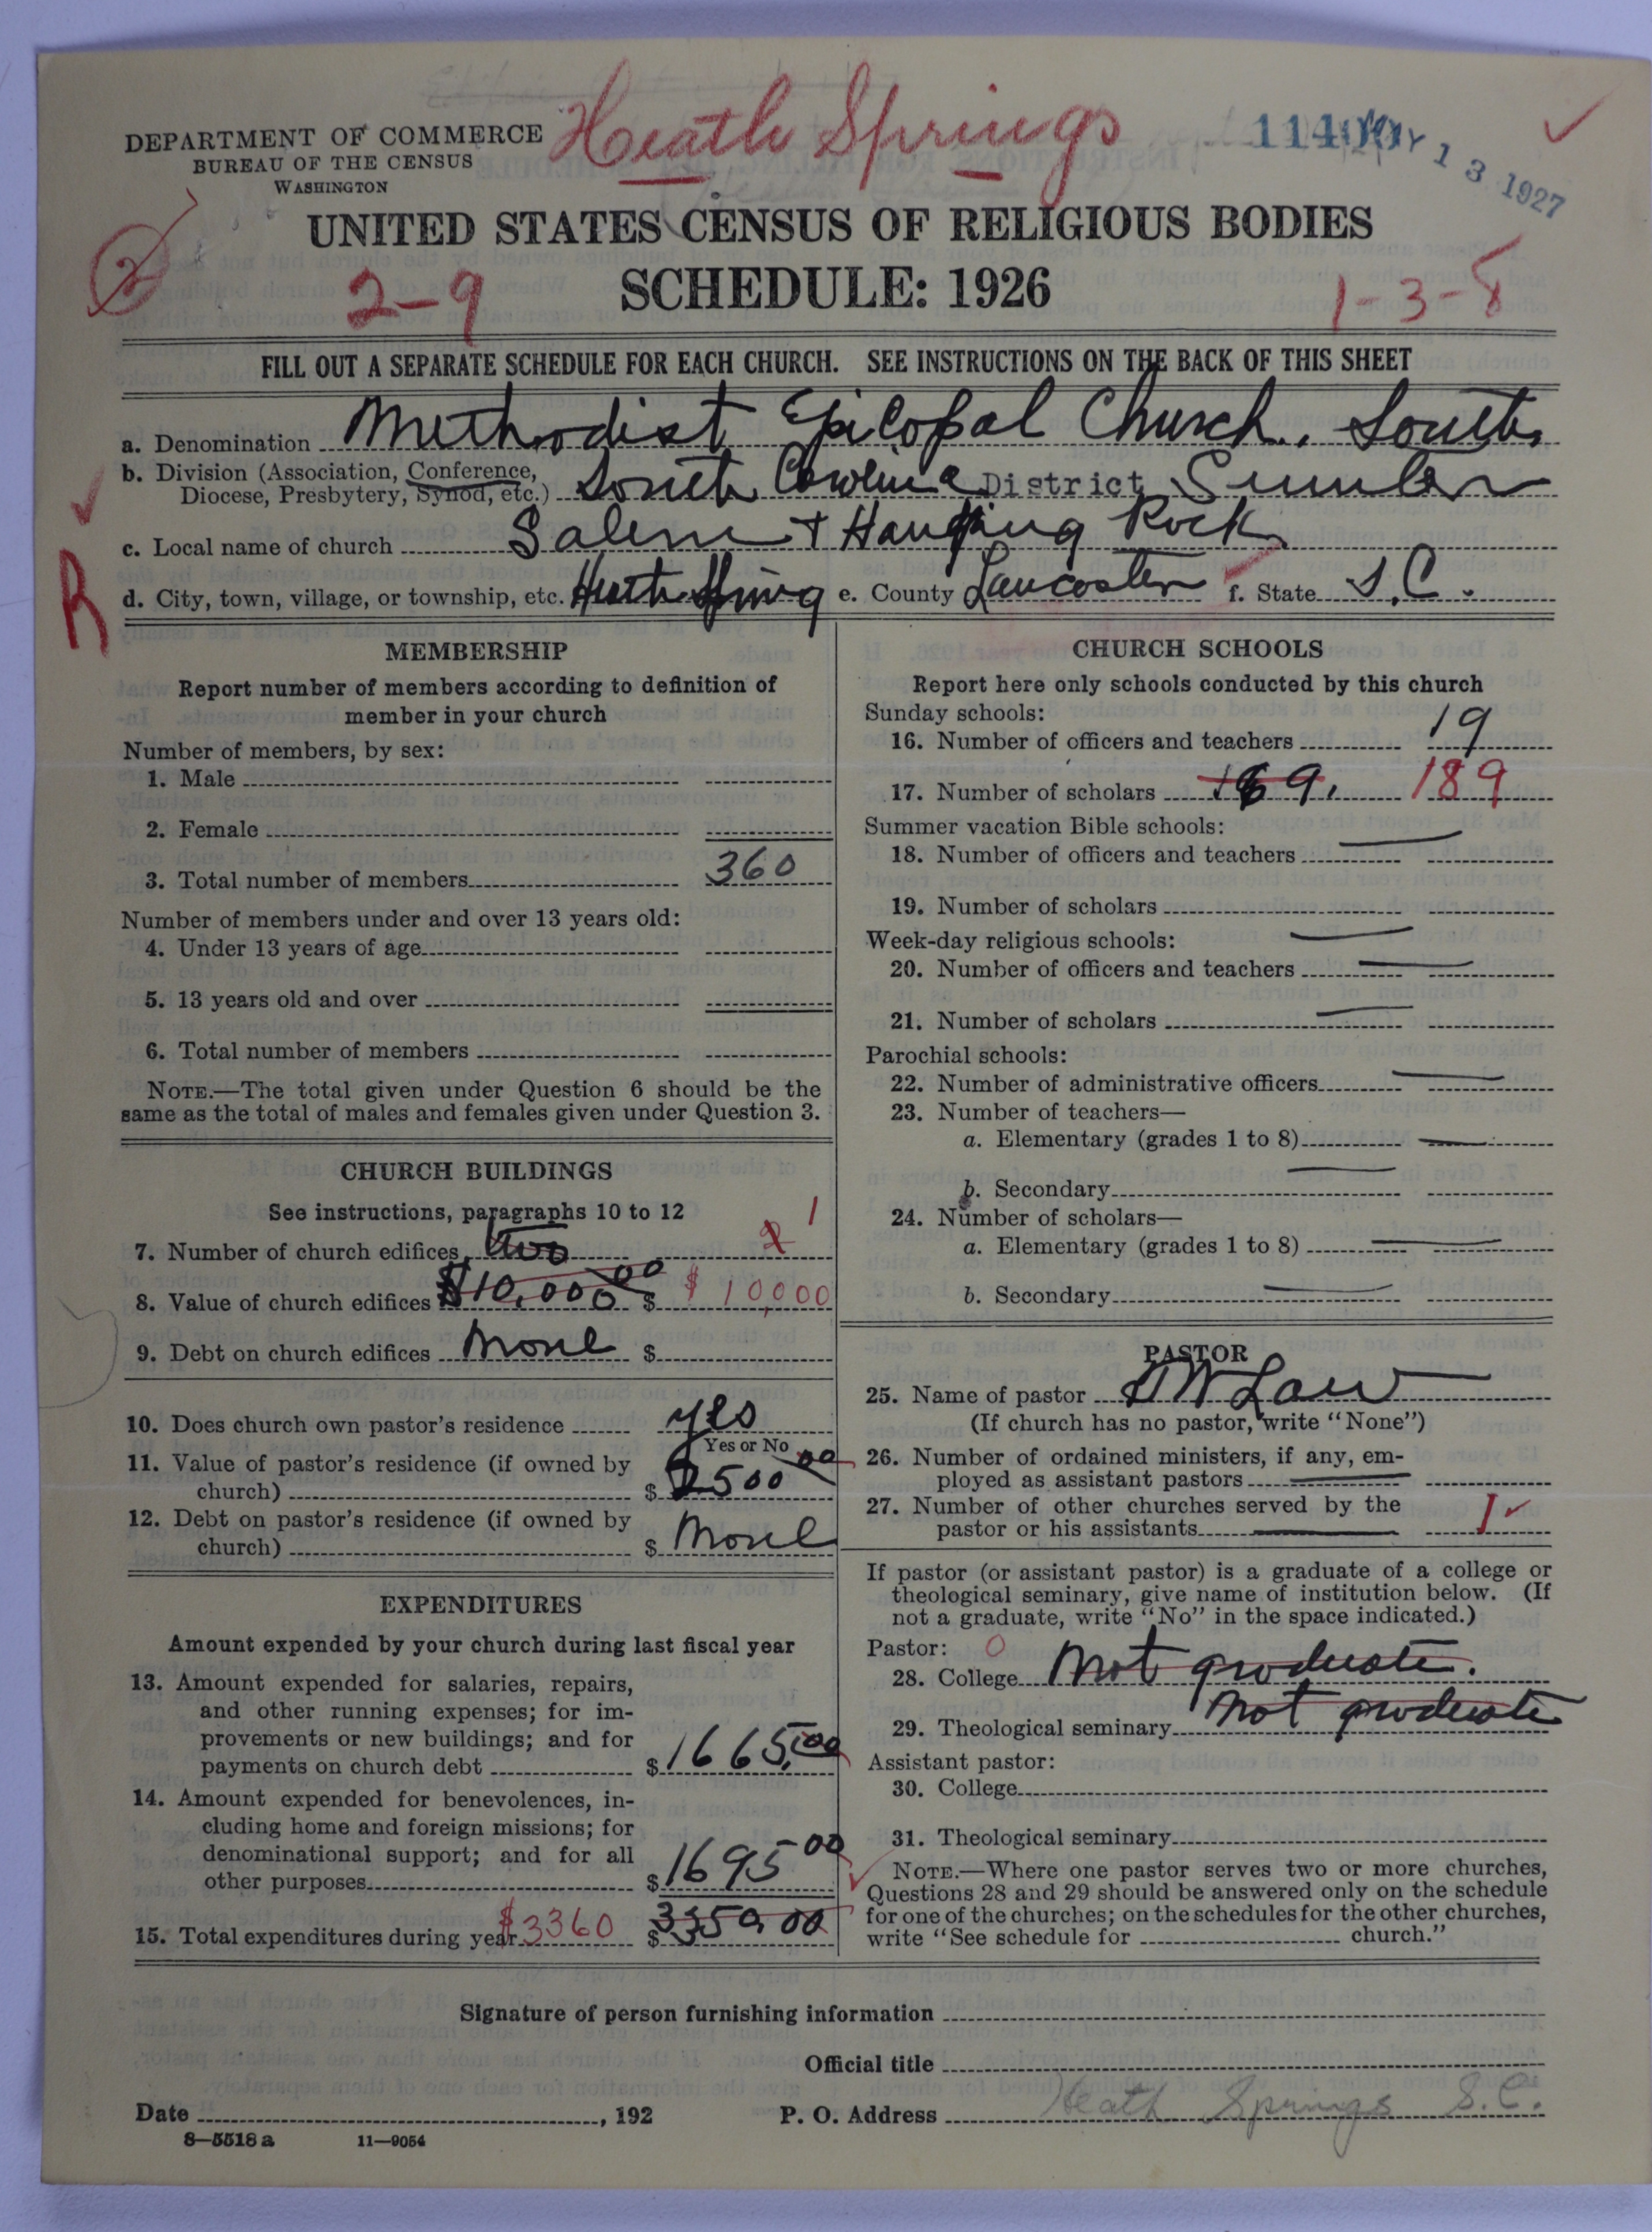 Heath Springs
11400
MAY 13 1927
DEPARTMENT OF COMMERCE
BUREAU OF THE CENSUS
WASHINGTON
UNITED STATES CENSUS OF RELIGIOUS BODIES
2
2-9
SCHEDULE: 1926
1-3-8
FILL OUT A SEPARATE SCHEDULE FOR EACH CHURCH. SEE INSTRUCTIONS ON THE BACK OF THIS SHEET
a. Denomination Methodist Epicopal Church, South
b. Division (Association, Conference,
Diocese, Presbytery, Synod, etc.) South Carolina District Sumter
c. Local name of church Salem + Hanging Rock
R
d. City, town, village, or township, etc. Heath Spring e. County Lancaster f. State S.C.
MEMBERSHIP
Report number of members according to definition of
member in your church
Number of members, by sex:
1. Male
2. Female
3. Total number of members 360
Number of members under and over 13 years old:
4. Under 13 years of age
5. 13 years old and over
6. Total number of members
NOTE.—The total given under Question 6 should be the
same as the total of males and females given under Question 3.
CHURCH BUILDINGS
See instructions, paragraphs 10 to 12
7. Number of church edifices two 2 1
8. Value of church edifices $10,000 00 $ $10,000
9. Debt on church edifices None $
10. Does church own pastor's residence yes
Yes or No
11. Value of pastor's residence (if owned by
church) $ 2500 00
12. Debt on pastor's residence (if owned by
church) $ None
EXPENDITURES
Amount expended by your church during last fiscal year
13. Amount expended for salaries, repairs,
and other running expenses; for im-
provements or new buildings; and for
payments on church debt $ 1665,00
14. Amount expended for benevolences, in-
cluding home and foreign missions; for
denominational support; and for all
other purposes $ 1695 00
15. Total expenditures during year $3360 $ 3350 00
CHURCH SCHOOLS
Report here only schools conducted by this church
Sunday schools:
16. Number of officers and teachers 19
17. Number of scholars 189. 189
Summer vacation Bible schools:
18. Number of officers and teachers
19. Number of scholars
Week-day religious schools:
20. Number of officers and teachers
21. Number of scholars
Parochial schools:
22. Number of administrative officers
23. Number of teachers—
a. Elementary (grades 1 to 8)
b. Secondary
24. Number of scholars—
a. Elementary (grades 1 to 8)
b. Secondary
PASTOR
25. Name of pastor D W Law
(If church has no pastor, write "None")
26. Number of ordained ministers, if any, em-
ployed as assistant pastors
27. Number of other churches served by the
pastor or his assistants 1
If pastor (or assistant pastor) is a graduate of a college or
theological seminary, give name of institution below. (If
not a graduate, write "No" in the space indicated.)
Pastor: 0
28. College Not graduate.
29. Theological seminary Not graduate
Assistant pastor:
30. College
31. Theological seminary
NOTE.—Where one pastor serves two or more churches,
Questions 28 and 29 should be answered only on the schedule
for one of the churches; on the schedules for the other churches,
write "See schedule for church."
Signature of person furnishing information
Official title
Date , 192
P. O. Address Heath Springs S.C.
8-5518 a 11-9054